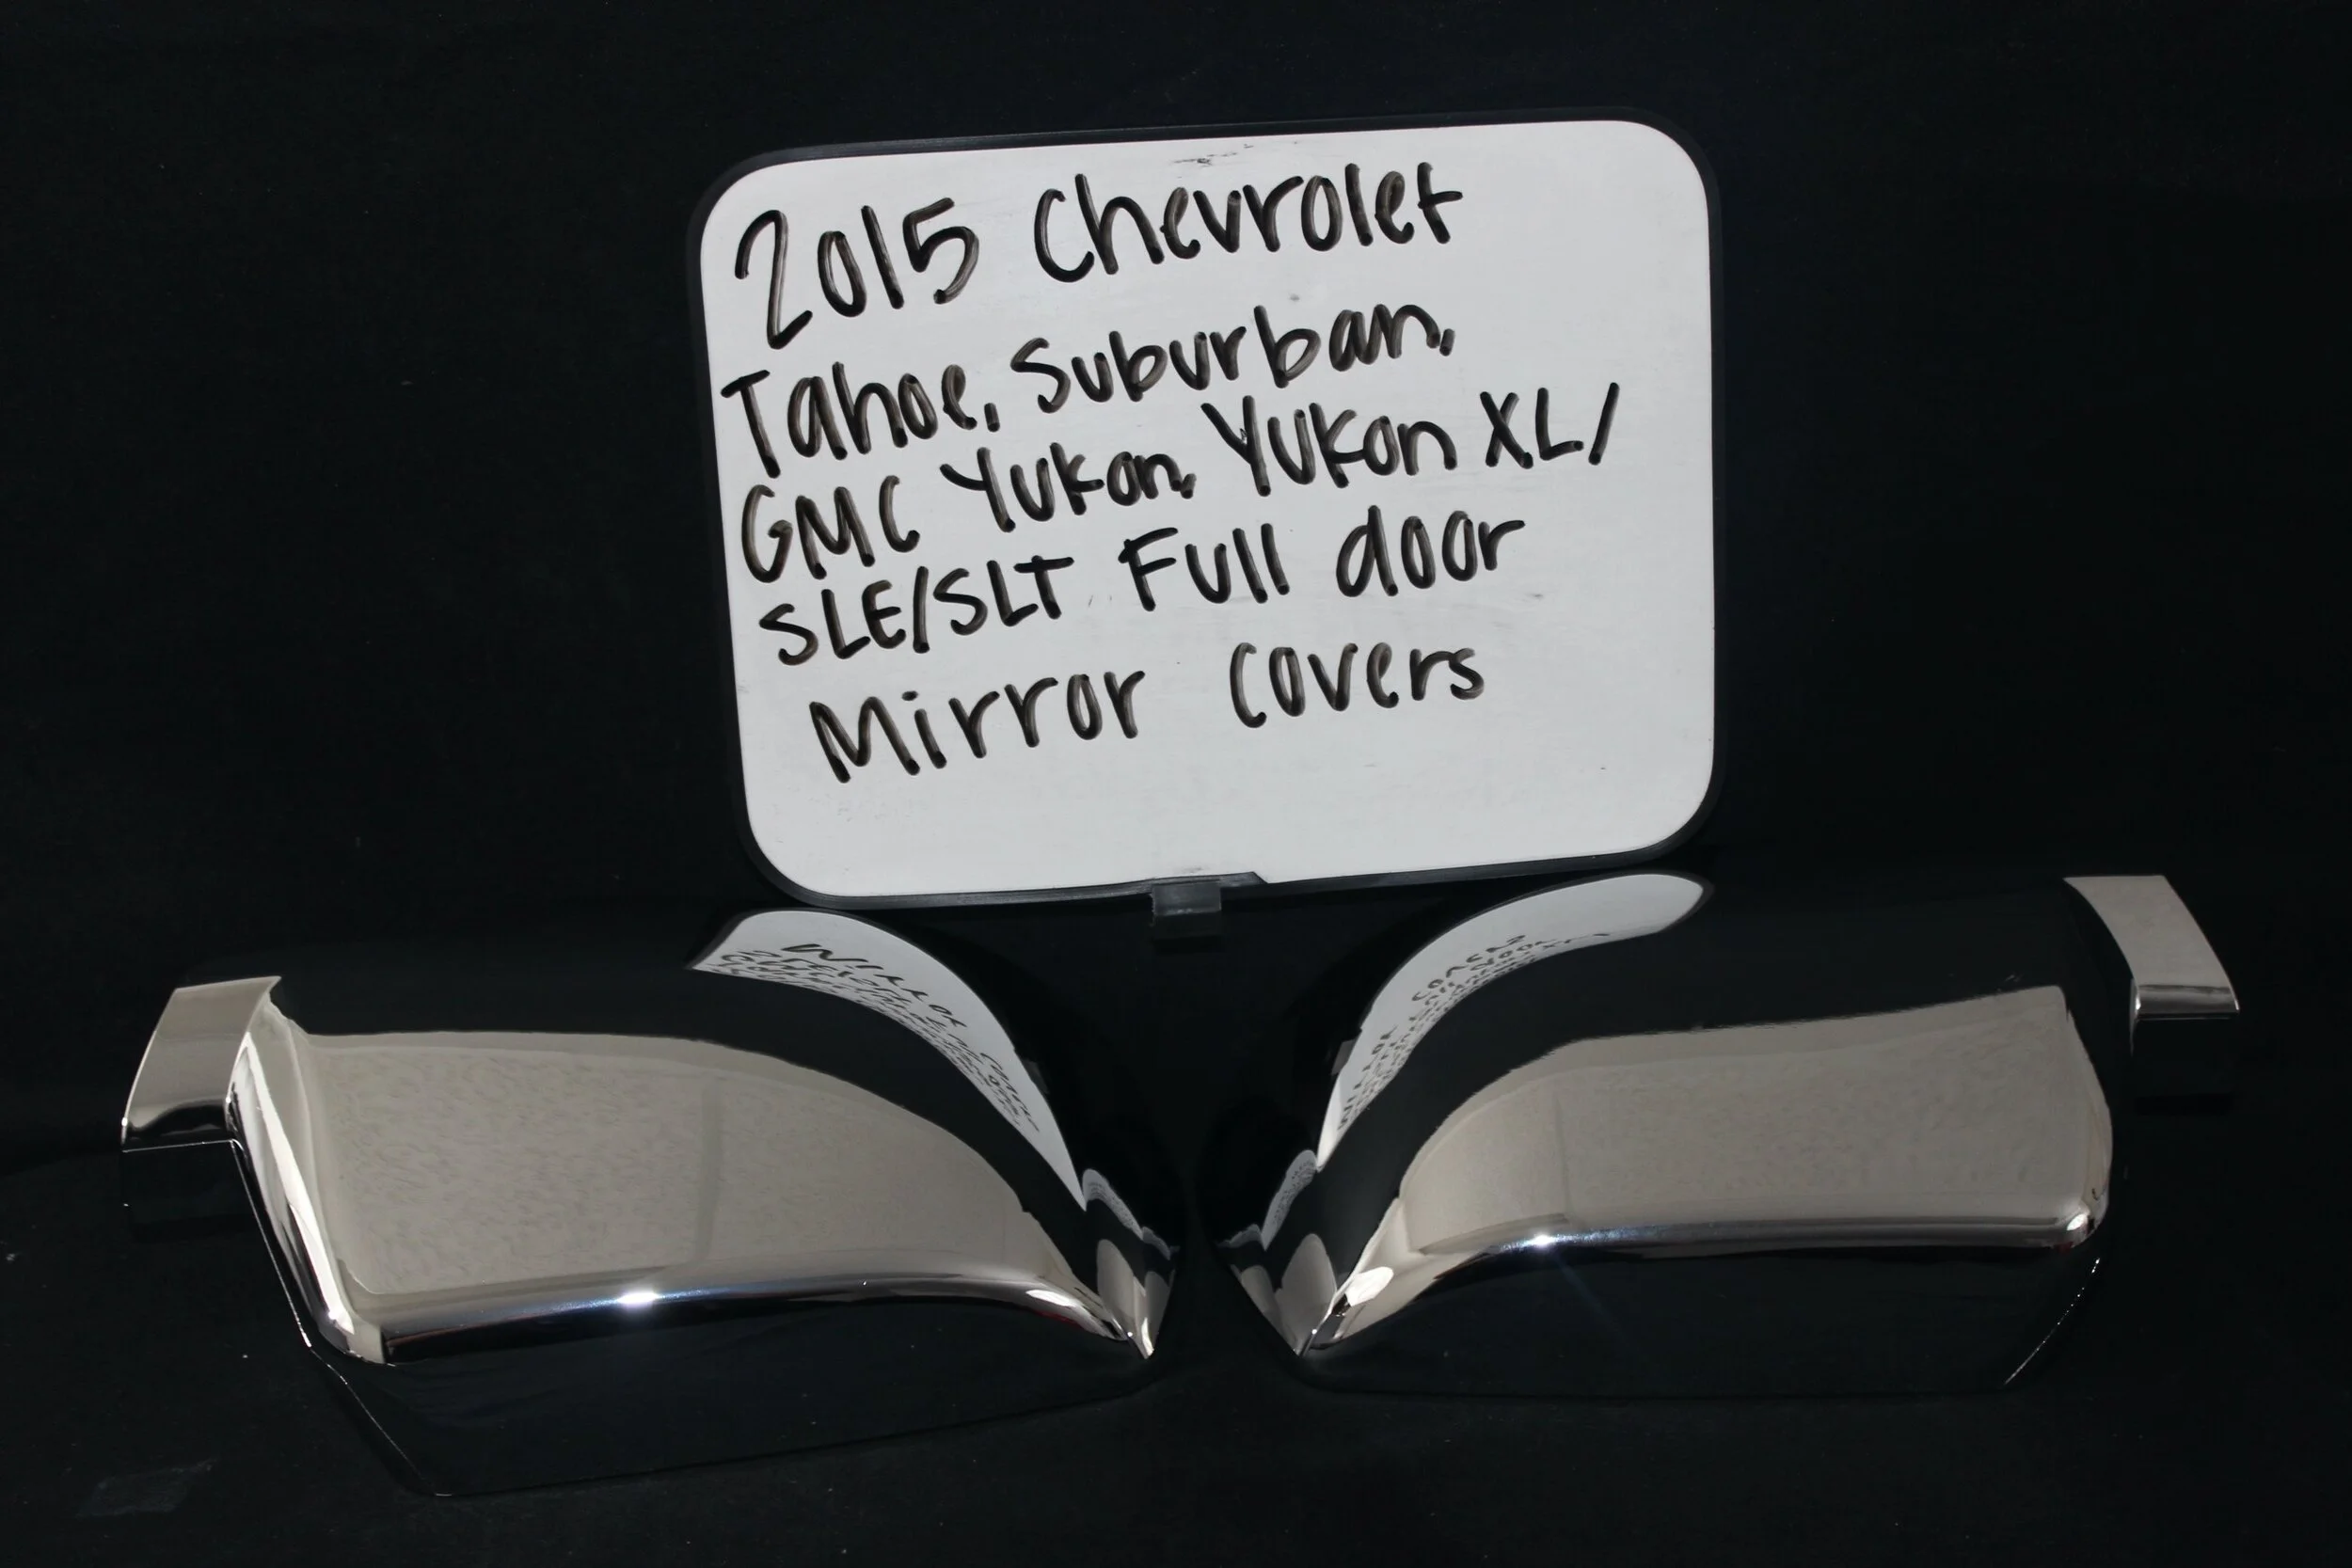 2015 Chevrolet
Tahoe, Suburban,
GMC Yukon, Yukon XL/
SLE/SLT Full door
Mirror covers